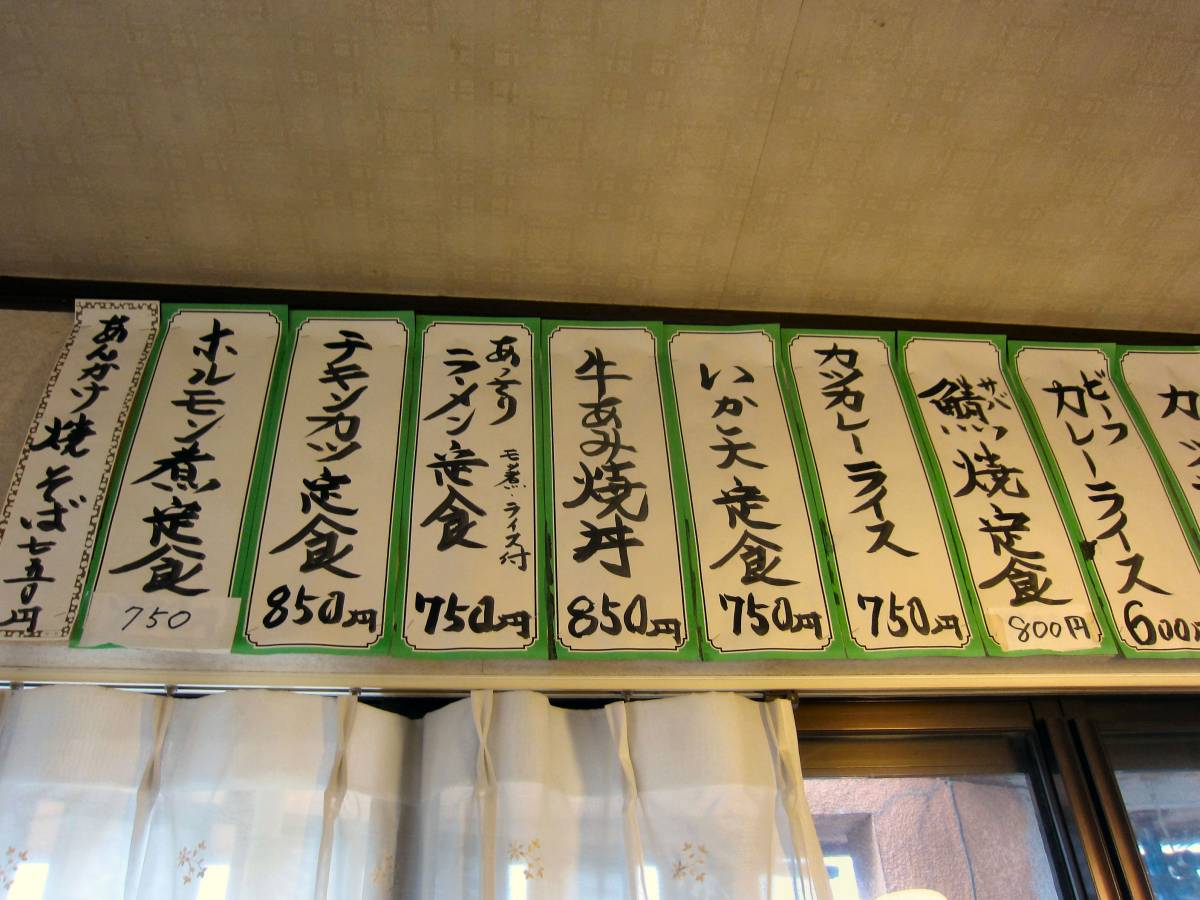 カ
ビーフ
カレーライス
600円
サバ
鯖焼定食
800円
カツカレーライス
750円
いか天定食
750円
牛あみ焼丼
850円
あっさり
ラーメン定食
モツ煮・ライス付
750円
チキンカツ定食
850円
ホルモン煮定食
750
あんかけ焼そば七五〇円